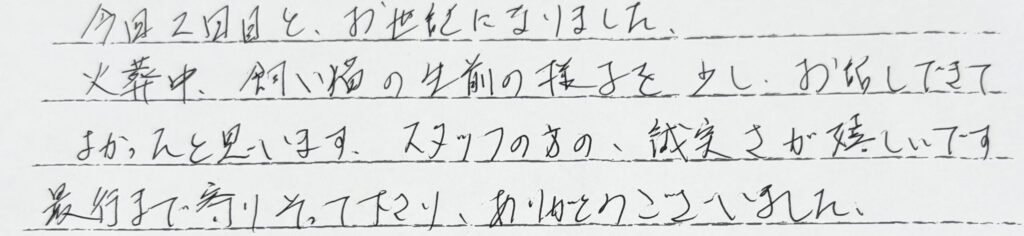 今回2回目と、お世話になりました。
火葬中、飼い猫の生前の様子を少し、お話しできて
よかったと思います。スタッフの方の、誠実さが嬉しいです
最後まで寄りそって下さり、ありがとうございました。